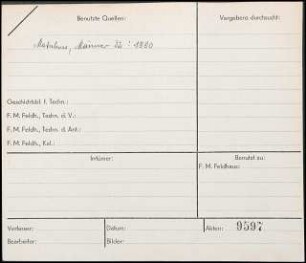 Benutzte Quellen:
Vergebens durchsucht:
Matschoss, Männer d. T. 1890
Geschichtsbl. f. Techn.:
F. M. Feldh., Techn. d. V.:
F. M. Feldh., Techn. d. Ant.:
F. M. Feldh., Kal.:
Irrtümer:
Benutzt zu:
F. M. Feldhaus:
Verfasser:
Datum:
Akten: 9597
Bearbeiter:
Bilder: